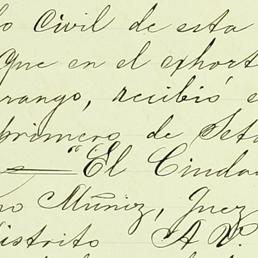 o Civil de esta
que en el exhort
rango, recibió e
primero de Set
"El Ciudad
no Muñiz, Juez
Distrito A V.